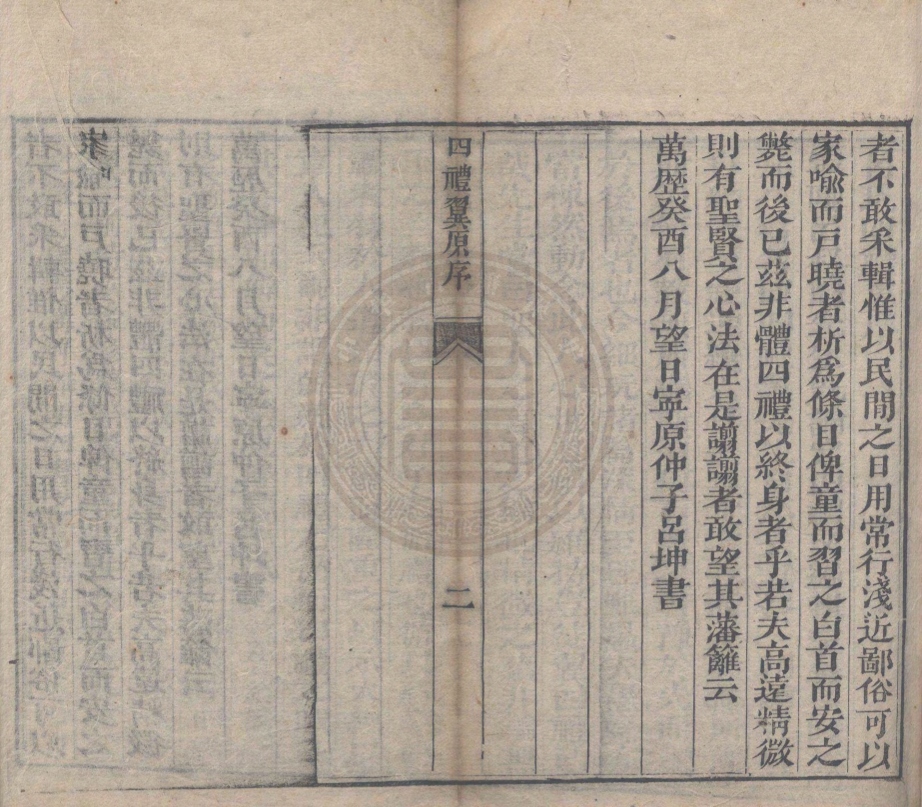 者不敢采輯惟以民間之日用常行淺近鄙俗可以
家喻而戸曉者析爲條目俾童而習之白首而安之
斃而後已茲非體四禮以終身者乎若夫高遠精微
則有聖賢之心法在是譾譾者敢望其藩籬云
萬歷癸酉八月望日寧原仲子呂坤書
四禮翼原序
二